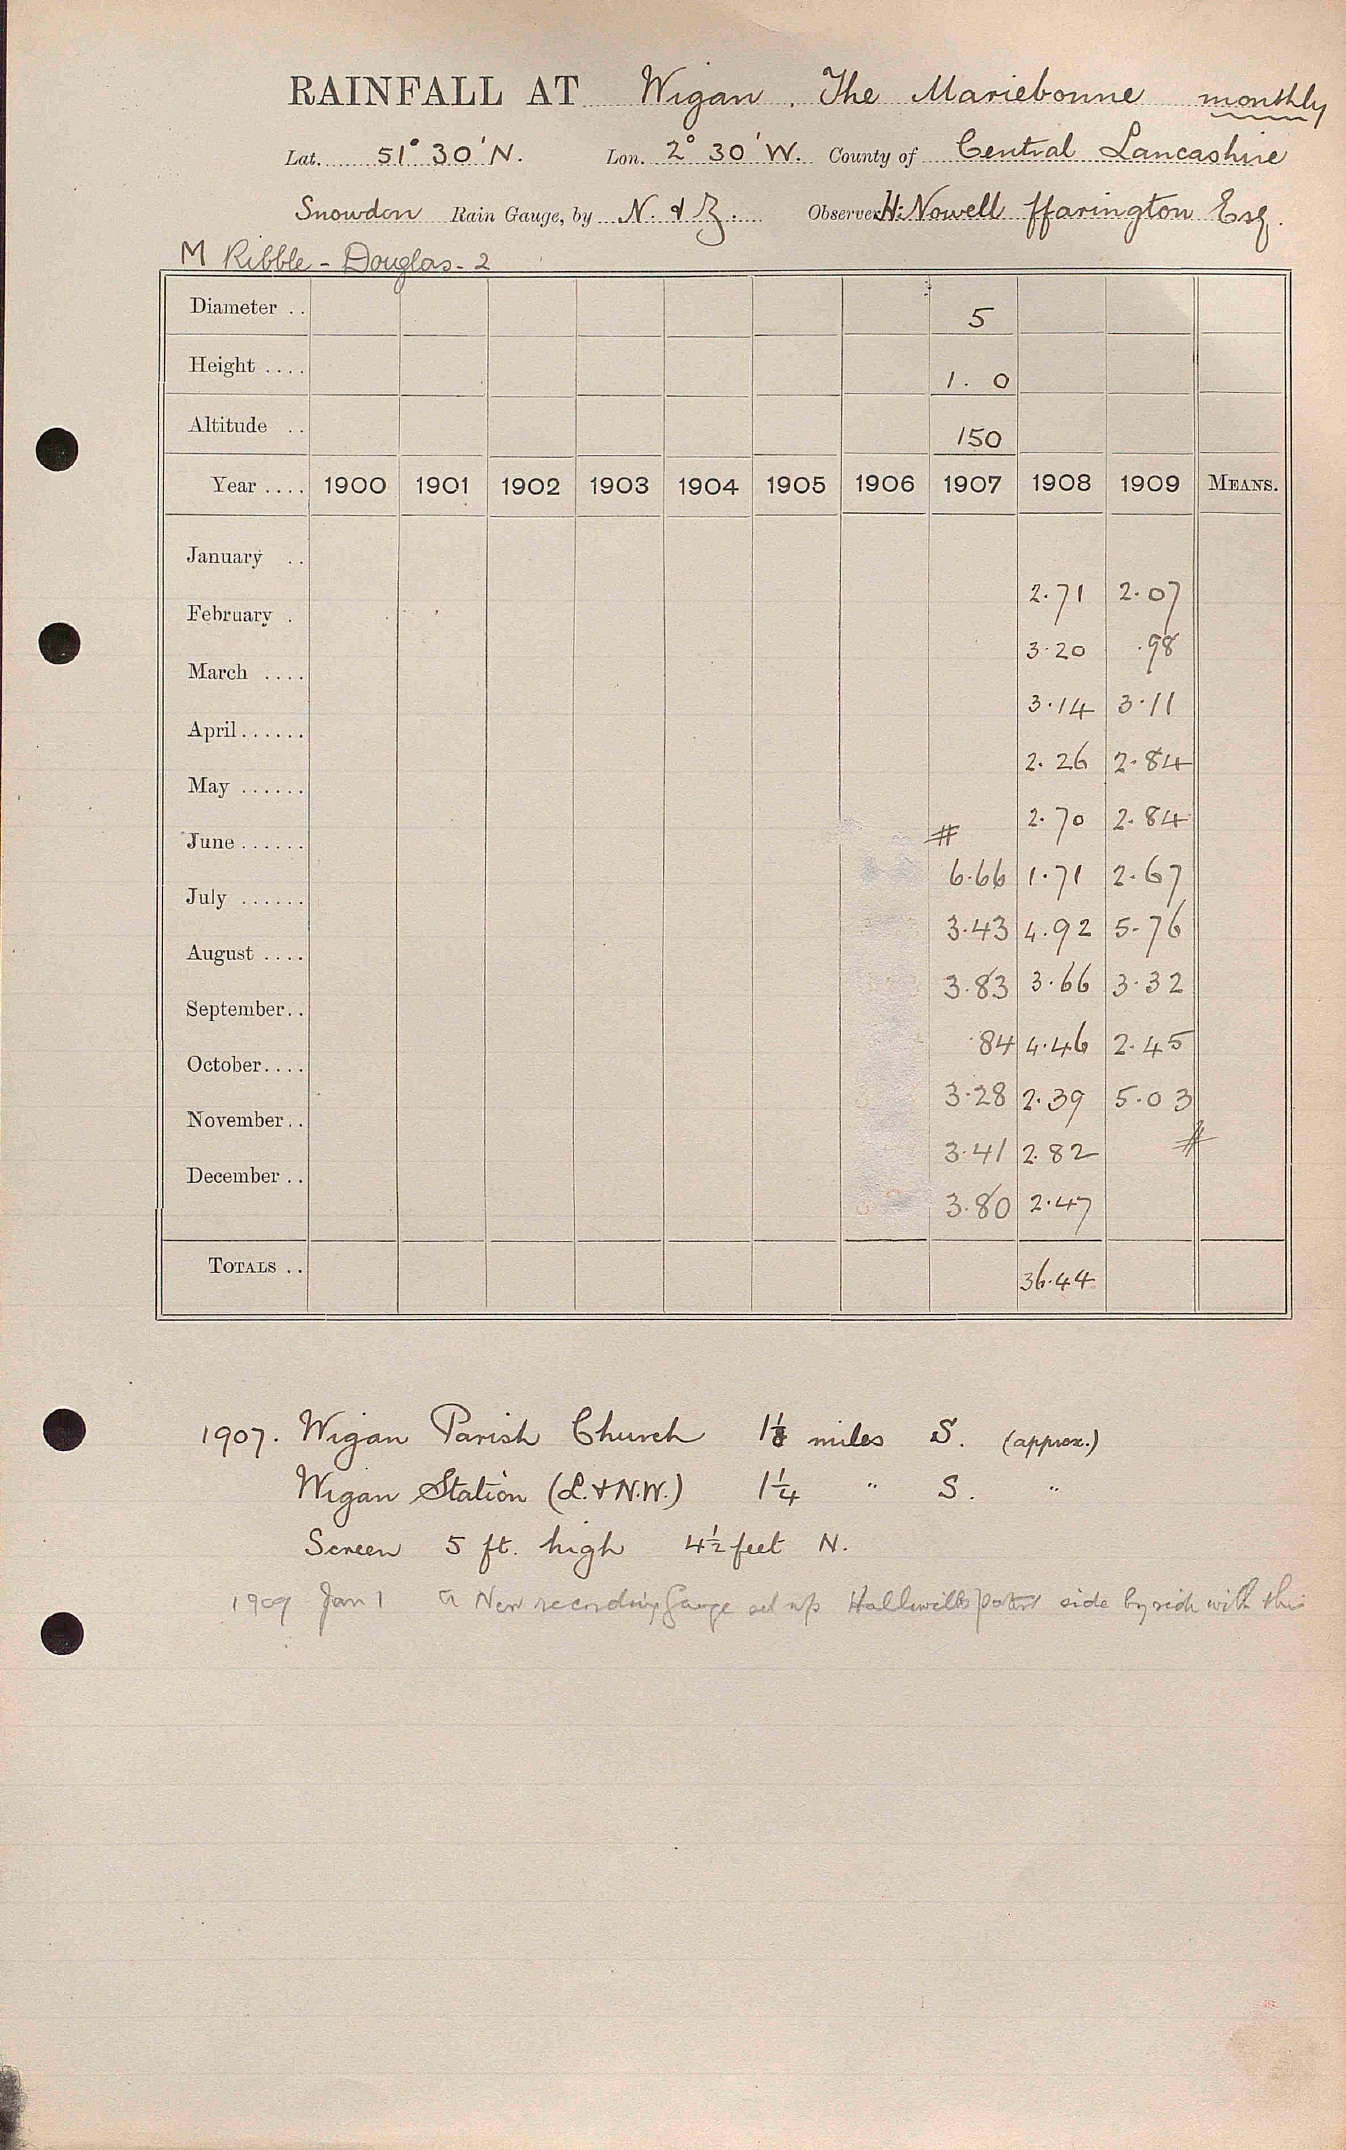 RAINFALL AT Wigan. The Mariebonne monthly
Lat. 51° 30' N. Lon. 2° 30' W. County of Central Lancashire
Snowdon Rain Gauge, by N. & Z. Observer H. Nowell ffarington Esq.
M Ribble - Douglas - 2
Diameter .. 5
Height .... 1. 0
Altitude .. 150
Year .... 1900 1901 1902 1903 1904 1905 1906 1907 1908 1909 MEANS.
January .. 2.71 2.07
February . 3.20 .98
March .... 3.14 3.11
April...... 2.26 2.84
May ...... 2.70 2.84
#
June ...... 6.66 1.71 2.67
July ...... 3.43 4.92 5.76
August .... 3.83 3.66 3.32
September.. .84 4.46 2.45
October.... 3.28 2.39 5.03
#
November.. 3.41 2.82
December .. 3.80 2.47
TOTALS .. 36.44
1907. Wigan Parish Church 1⅛ miles S. (approx.)
Wigan Station (L. & N.W.) 1¼ " S. "
Screen 5 ft. high 4½ feet N.
1909 Jan 1 a New recording Gauge set up Halliwells patent side by side with this